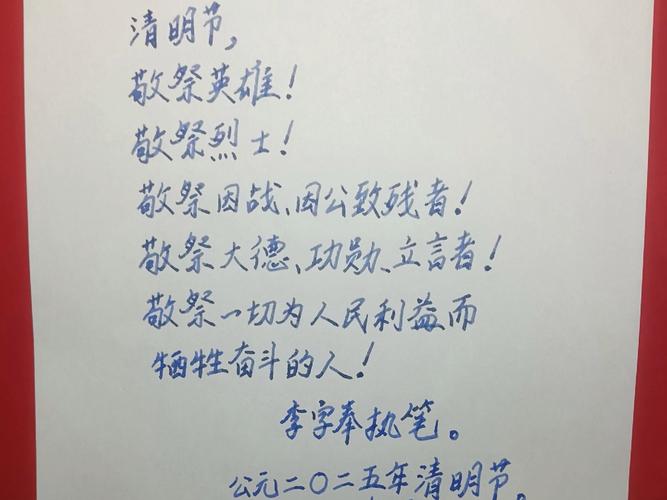 清明节,
敬祭英雄!
敬祭烈士!
敬祭因战、因公致残者!
敬祭大德、功勋、立言者!
敬祭一切为人民利益而
牺牲奋斗的人!
李字奉执笔。
公元二〇二五年清明节。